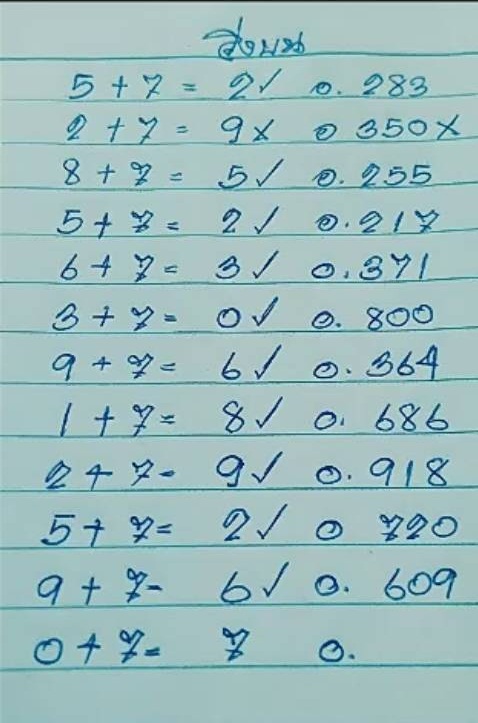 วิ่งบน
5 + 7 = 2✓ 0. 283
2 + 7 = 9x 0 350x
8 + 7 = 5✓ 0. 255
5 + 7 = 2✓ 0. 217
6 + 7 = 3✓ 0. 371
3 + 7 = 0✓ 0. 800
9 + 7 = 6✓ 0. 364
1 + 7 = 8✓ 0. 686
2 + 7 - 9✓ 0. 918
5 + 7 = 2✓ 0 720
9 + 7 - 6✓ 0. 609
0 + 7 = 7 0.